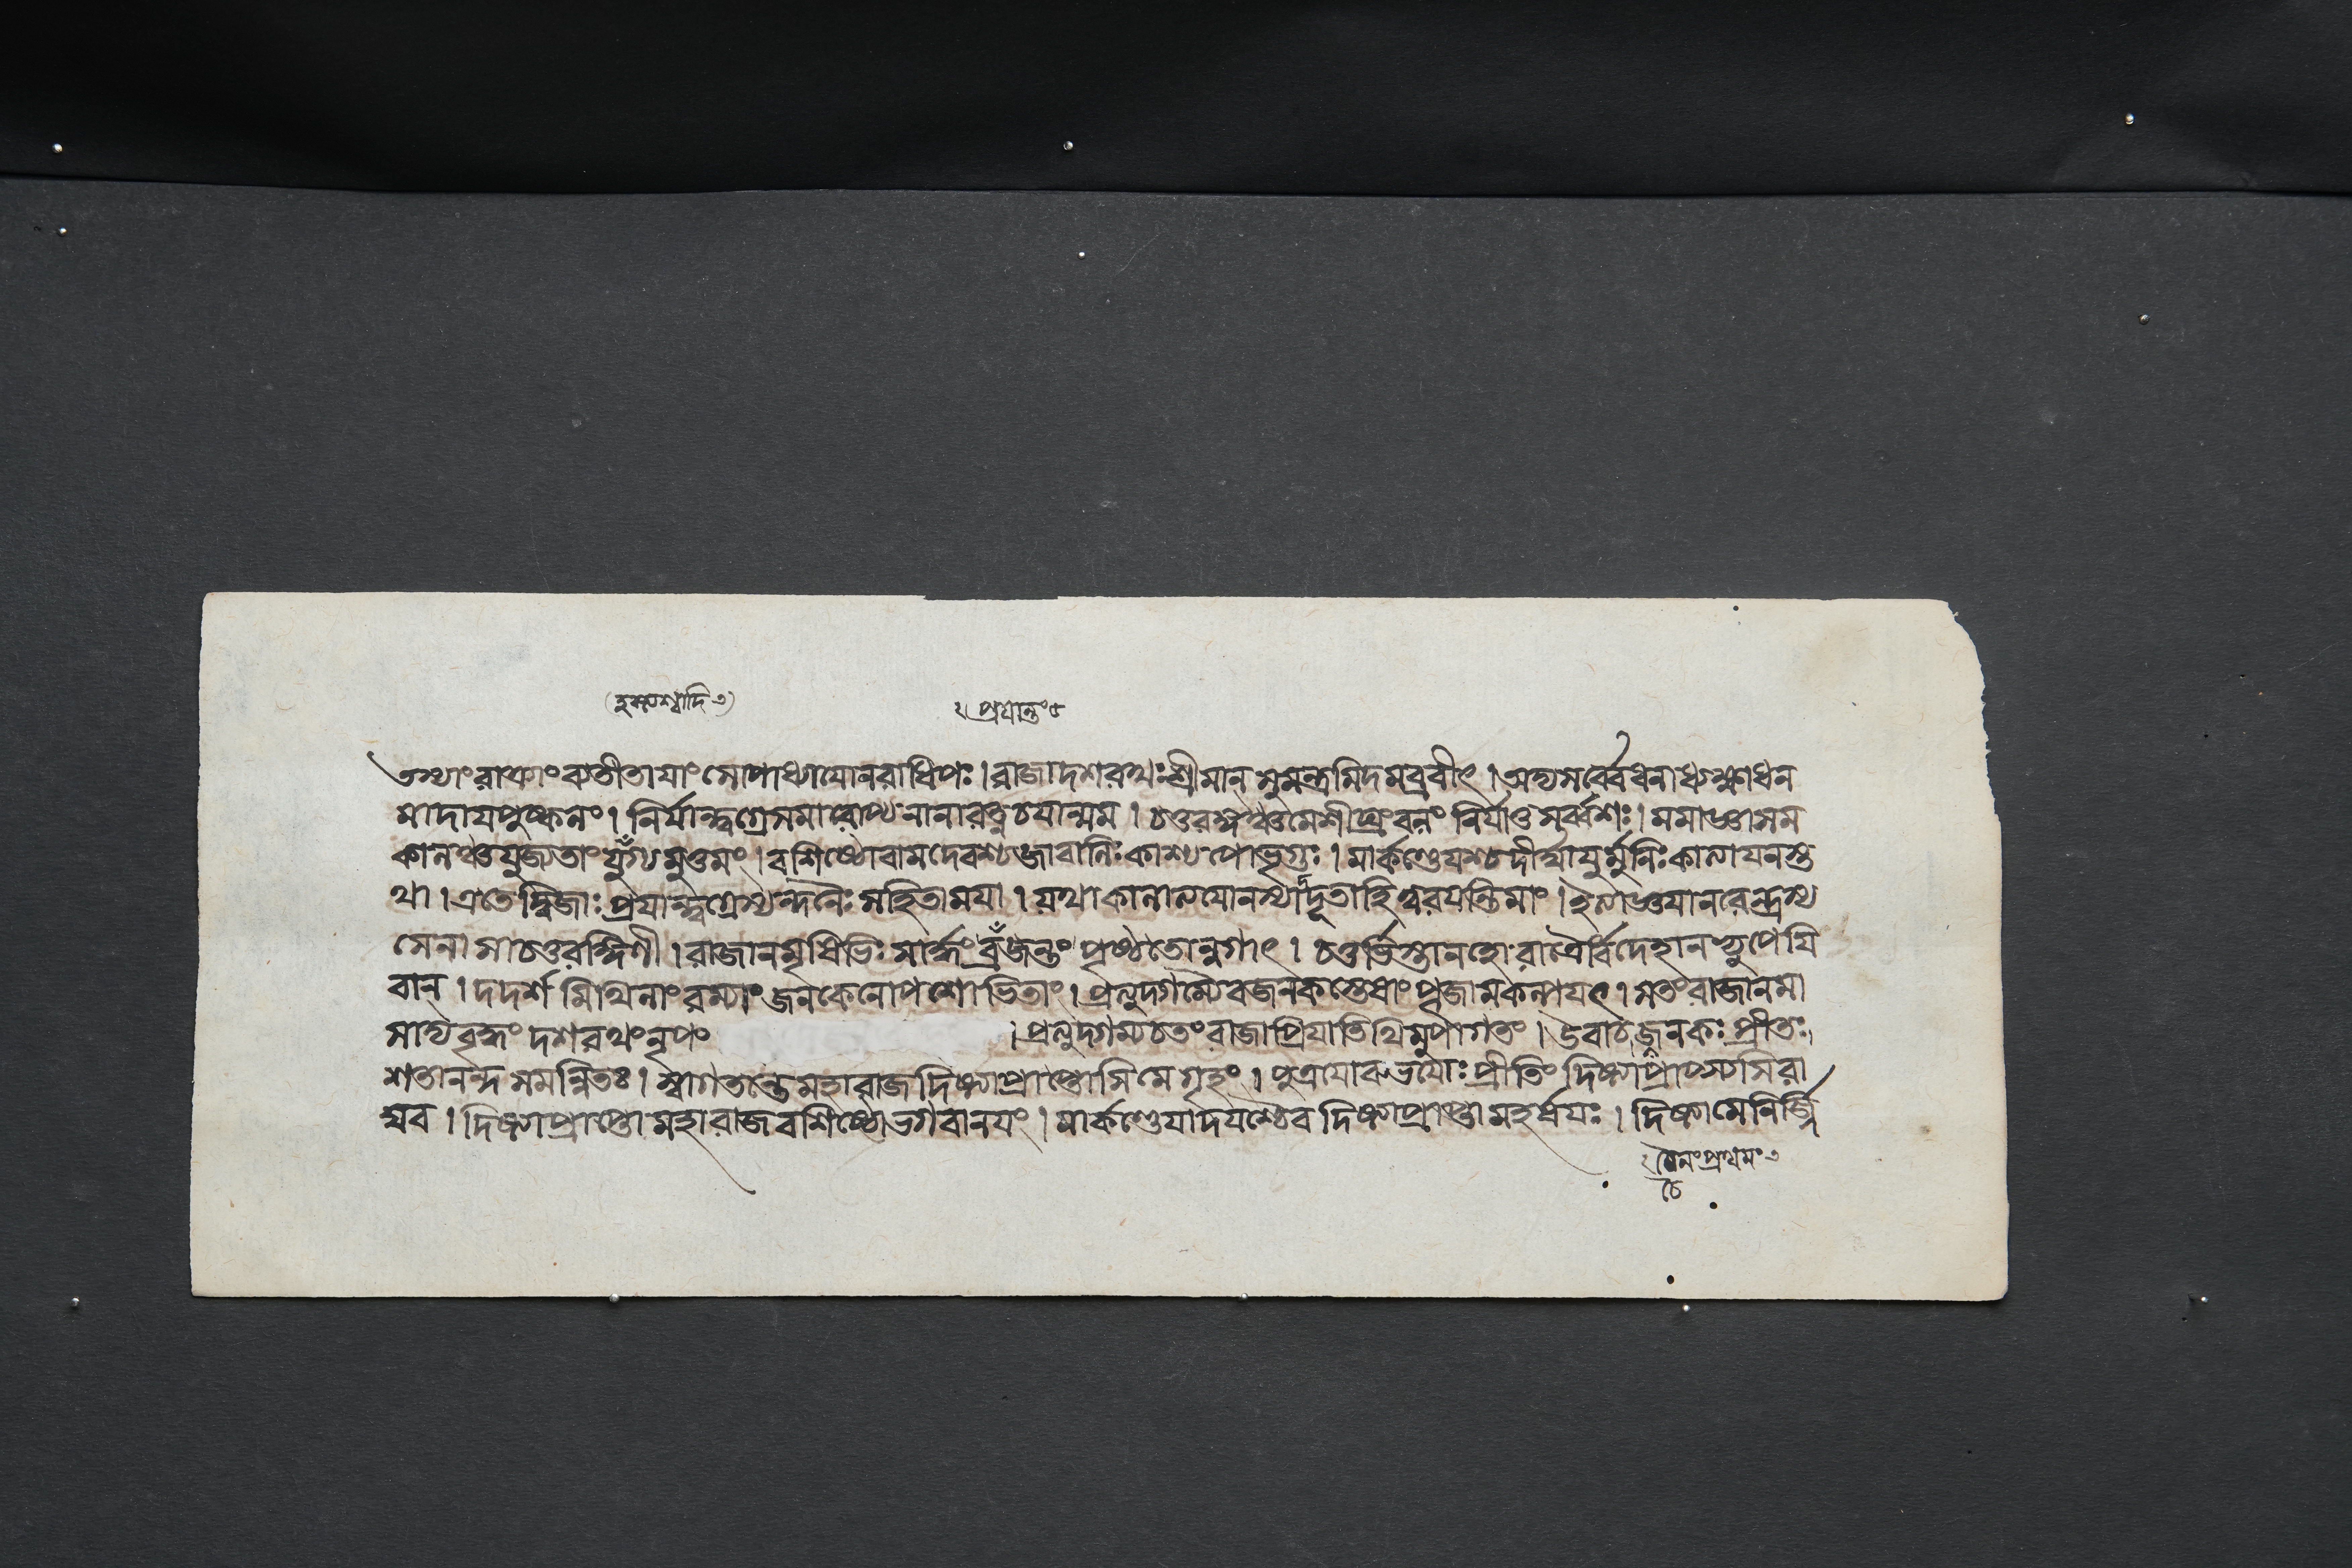 তস্যাং রাত্র্যাং ব্যতীতায়াং সোপাধ্যায়ো নরাধিপঃ । রাজা দশরথঃ শ্রীমান্ সুমন্ত্রমিদমব্রবীৎ । অদ্য সর্ব্বে ধনাধ্যক্ষা ধন
মাদায় পুষ্কলং । নির্যান্ত্বগ্রে সমারোপ্য নানারত্নচয়ান্মম । চতুরঙ্গং বলং নির্যাতু সর্ব্বশঃ । মমাজ্ঞাসম
কালঞ্চ যুজ্যতাং যুগ্যমুত্তমং । বশিষ্ঠো বামদেবশ্চ জাবালিঃ কাশ্যপো ভৃগুঃ । মার্কণ্ডেয়শ্চ দীর্ঘায়ুর্মুনিঃ কাত্যায়নস্ত
থা । এতে দ্বিজাঃ প্রয়ান্ত্বগ্রে স্যন্দনৈঃ সহিতা ময়া । যথা কালাত্যয়ো ন স্যাদ্দূতা হি ত্বরয়ন্তি মাং । ইত্যাজ্ঞয়া নরেন্দ্রস্য
সেনা সা চতুরঙ্গিণী । রাজানমৃষিভিঃ সার্দ্ধং ব্রজন্তং পৃষ্ঠতোন্বগাৎ । চতুর্ভিস্তানহোরাত্রৈর্বিদেহানভ্যুপেয়ি
বান্ । দদর্শ মিথিলাং রম্যাং জনকেনোপশোভিতাং । প্রত্যুদ্গম্যৈব জনকস্তেষাং পূজামকল্পয়ৎ । স তং রাজানমা
সাদ্য বৃদ্ধং দশরথং নৃপং । প্রত্যুদ্গম্য চ তং রাজা প্রিয়াতিথিমুপাগতং । উবাচ জনকঃ প্রীতঃ
শতানন্দ সমন্বিতঃ । স্বাগতন্তে মহারাজ দিষ্ট্যা প্রাপ্তোসি মে গৃহং । পুত্রয়োরুভয়োঃ প্রীতিং দিষ্ট্যা প্রাপ্স্যসি রা
ঘব । দিষ্ট্যা প্রাপ্তো মহারাজ বশিষ্ঠো ভগবানয়ং । মার্কণ্ডেয়াদয়শ্চৈব দিষ্ট্যা প্রাপ্তা মহর্ষয়ঃ । দিষ্ট্যা মে নির্জ্জি